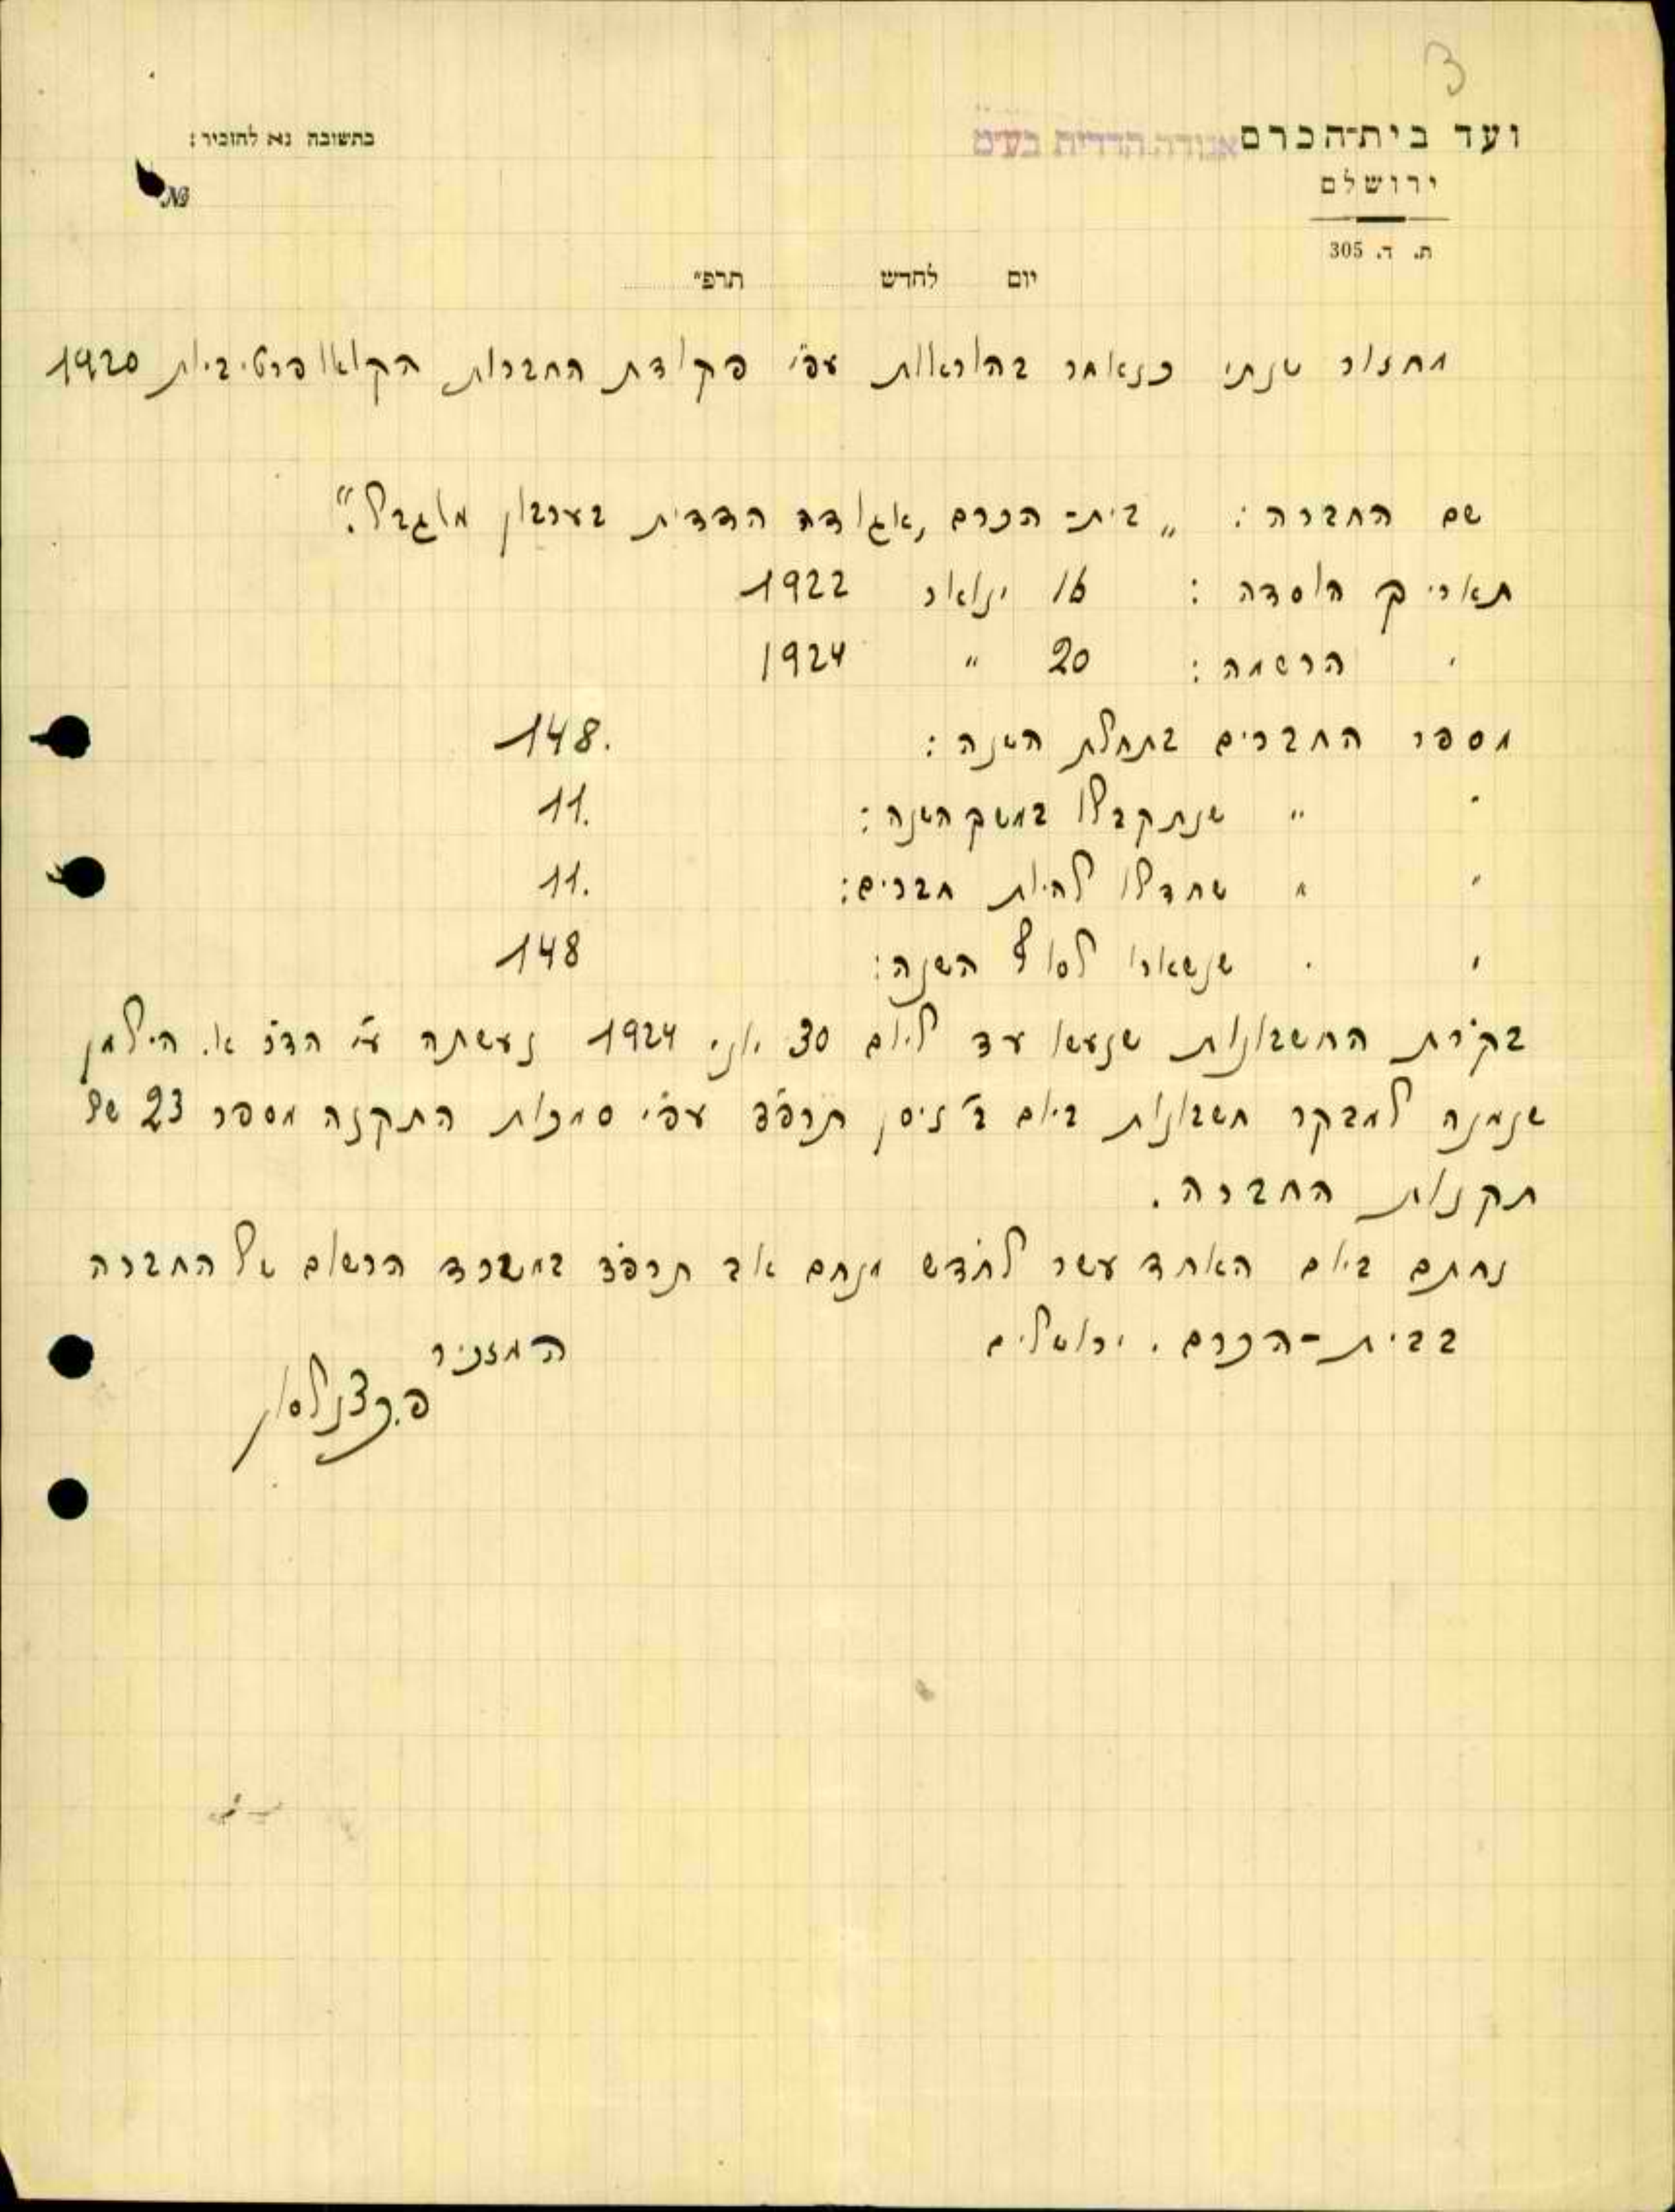 3
ועד בית־הכרם אגודה הדדית בע״מ
ירושלם
ת. ד. 305
בתשובה נא להזכיר:
№
יום לחדש תרפ״
מחזור שנתי כנאמר בהוראות עפ״י פקודת החברות הקואופרטיביות 1920
שם החברה: „בית־הכרם, אגודה הדדית בערבון מוגבל."
תאריך הוסדה: 16 ינואר 1922
" הרשמה: 20 " 1924
מספר החברים בתחלת השנה: 148.
" " שנתקבלו במשך השנה: 11.
" " שחדלו להיות חברים: 11.
" " שנשארו לסוף השנה: 148
בקרת החשבונות שנעשו עד ליום 30 יוני 1924 נעשתה ע״י הד״ר א. הילמן
שנמנה למבקר חשבונות ביום ב׳ ניסן תרפ״ד עפ״י סמכות התקנה מספר 23 של
תקנות החברה.
נחתם ביום האחד עשר לחדש מנחם אב תרפ״ד במשרד הרשום של החברה
בבית-הכרם. ירושלים
המזכיר
פ. כצנלסון